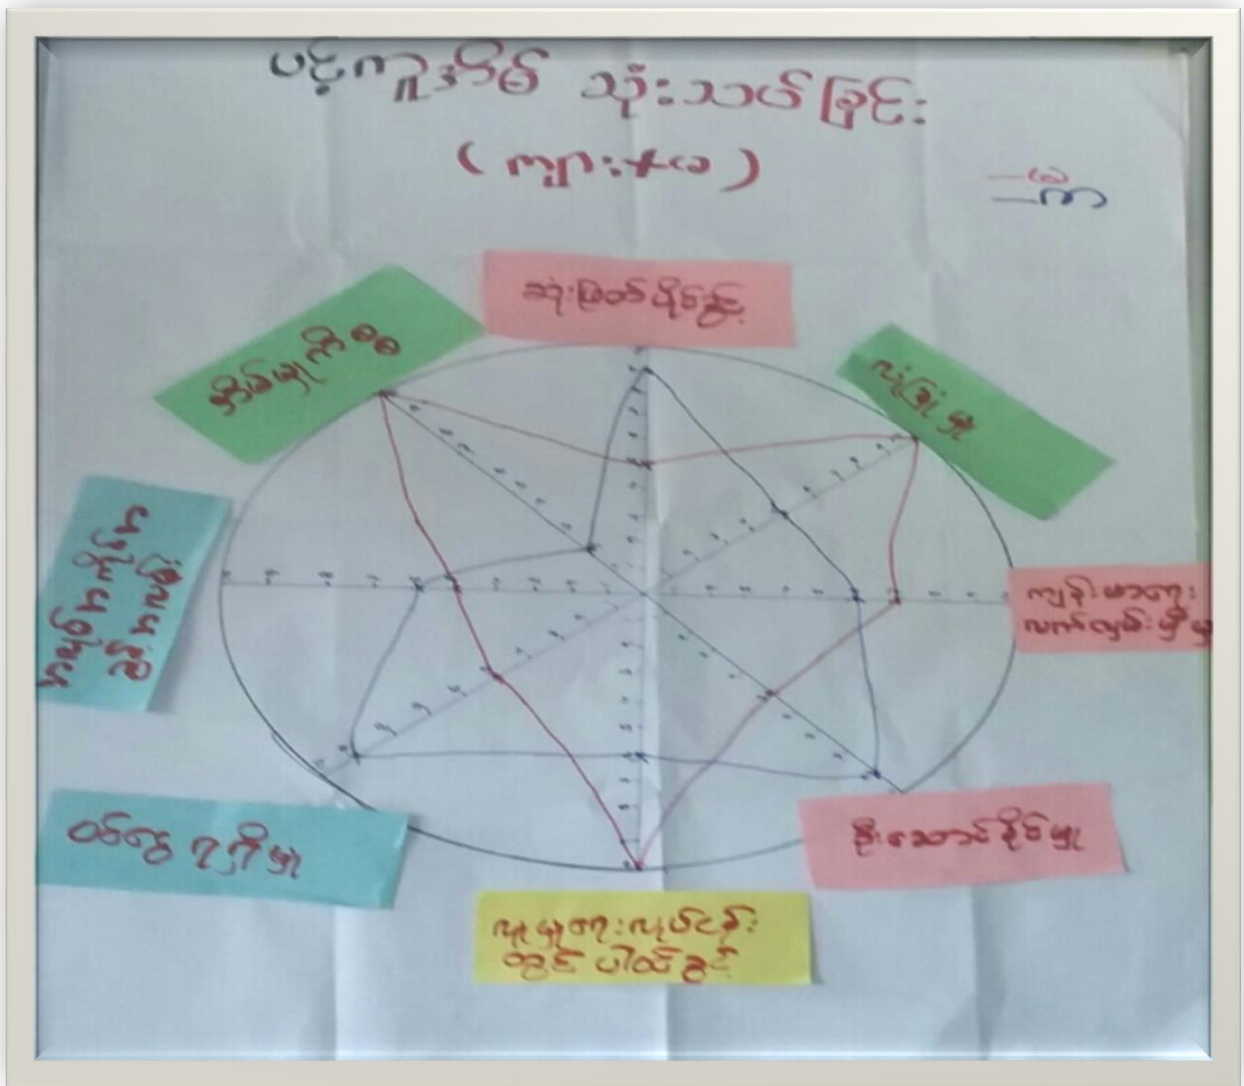 ပင့်ကူအိမ် သုံးသပ်ခြင်း
(ကျား+မ)
—မ
—ကျာ
ဆုံးဖြတ်ပိုင်ခွင့်
လုံခြုံမှု
ကျန်းမာရေး
လက်လှမ်းမှီမှု
ဦးဆောင်နိုင်မှု
လူမှုရေးလုပ်ငန်း
တွင် ပါဝင်ခွင့်
ဝင်ငွေ ရရှိမှု
အိမ်မှုကိစ္စ